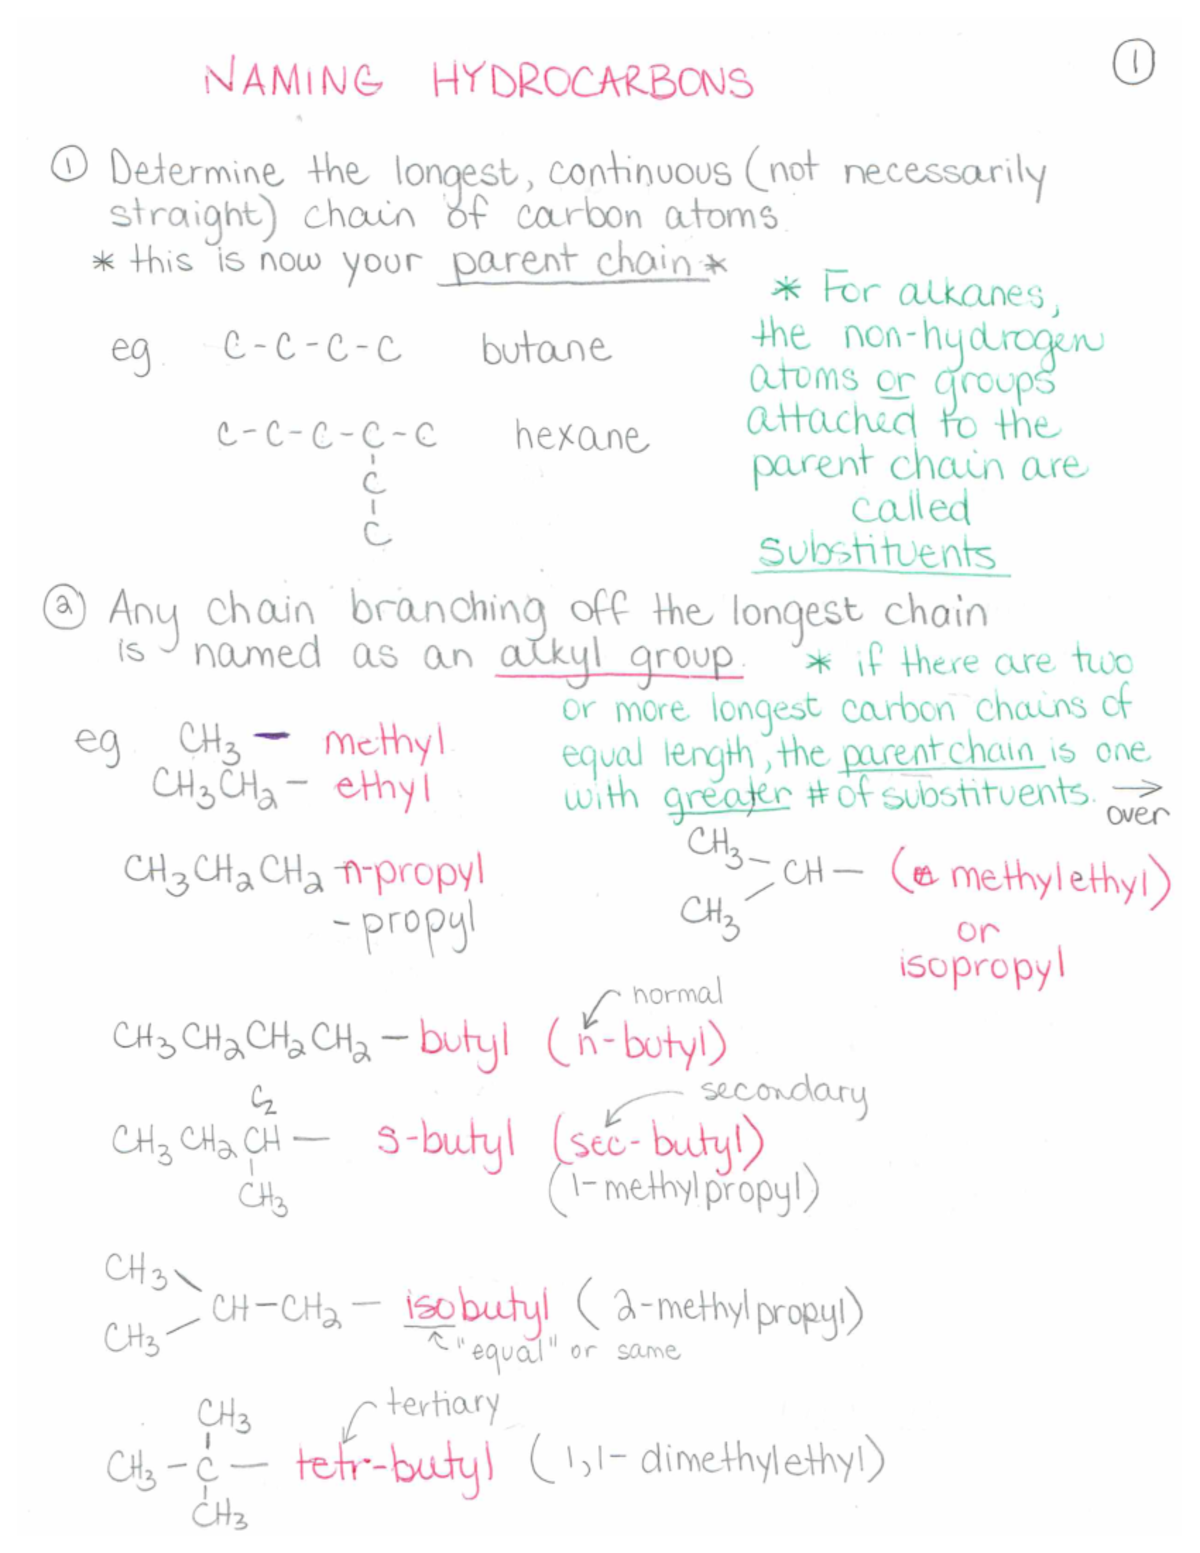 NAMING HYDROCARBONS
①
① Determine the longest, continuous (not necessarily
straight) chain of carbon atoms.
* this is now your parent chain *
* For alkanes,
the non-hydrogen
atoms or groups
attached to the
parent chain are
called
substituents
eg. C-C-C-C butane
C-C-C-C-C hexane
C
C
② Any chain branching off the longest chain
is named as an alkyl group.
* if there are two
or more longest carbon chains of
equal length, the parent chain is one
with greater # of substituents. →
over
eg. CH3 — methyl
CH3CH2 — ethyl
CH3CH2CH2 n-propyl
- propyl
CH3
CH — (methylethyl)
CH3
or
isopropyl
normal
CH3CH2CH2CH2 — butyl (n-butyl)
C2
secondary
CH3CH2CH — s-butyl (sec-butyl)
CH3
(1-methylpropyl)
CH3
CH-CH2 — isobutyl (2-methylpropyl)
CH3
"equal" or same
CH3
tertiary
CH3-C — tetr-butyl (1,1-dimethylethyl)
CH3